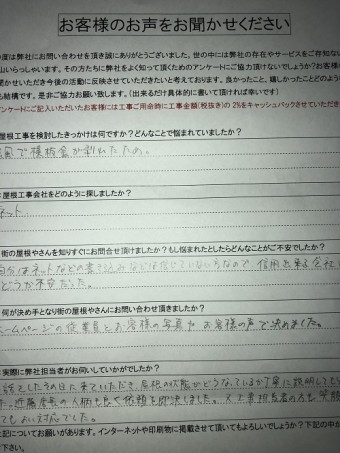 お客様のお声をお聞かせください
度は弊社にお問い合わせを頂き誠にありがとうございました。世の中には弊社の存在やサービスをご存知ない
山いらっしゃいます。その方たちに弊社をよく知って頂くためのアンケートにご協力頂けないでしょうか?お客様が
聞かせいただき今後の活動に反映させていただきたいと考えております。良かったこと、嬉しかったことどのような
も結構です。是非ご協力お願い致します。(出来るだけ具体的に書いて頂ければ幸いです)
アンケートにご記入いただいたお客様には工事ご用命時に工事金額(税抜き)の 2%をキャッシュバックさせていただき
屋根工事を検討したきっかけは何ですか?どんなことで悩まれていましたか?
風で棟板金が剥れたため。
屋根工事会社をどのように探しましたか?
ネット
街の屋根やさんを知りすぐにお問合せ頂けましたか?もし悩まれたとしたらどんなことがご不安でしたか?
自分はネットなどの書き込みなどは信じていないたちなので、信用出来る会社か
どうか不安だった。
何が決め手となり街の屋根やさんにお問い合わせ頂きましたか?
ホームページの従業員とお客様の写真やお客様の声で決めました。
実際に弊社担当者がお伺いしていかがでしたか?
話をしたらその日に来ていただき、屋根の状態がどうなっているか丁寧に説明してもら
近藤店長の人柄も良く依頼を即決しました。又工事担当者の方も笑顔
とても良い対応でした。
上記についてお願いがあります。インターネットや印刷物に掲載させて頂いてもよろしいでしょうか?下記の中か
下さい。